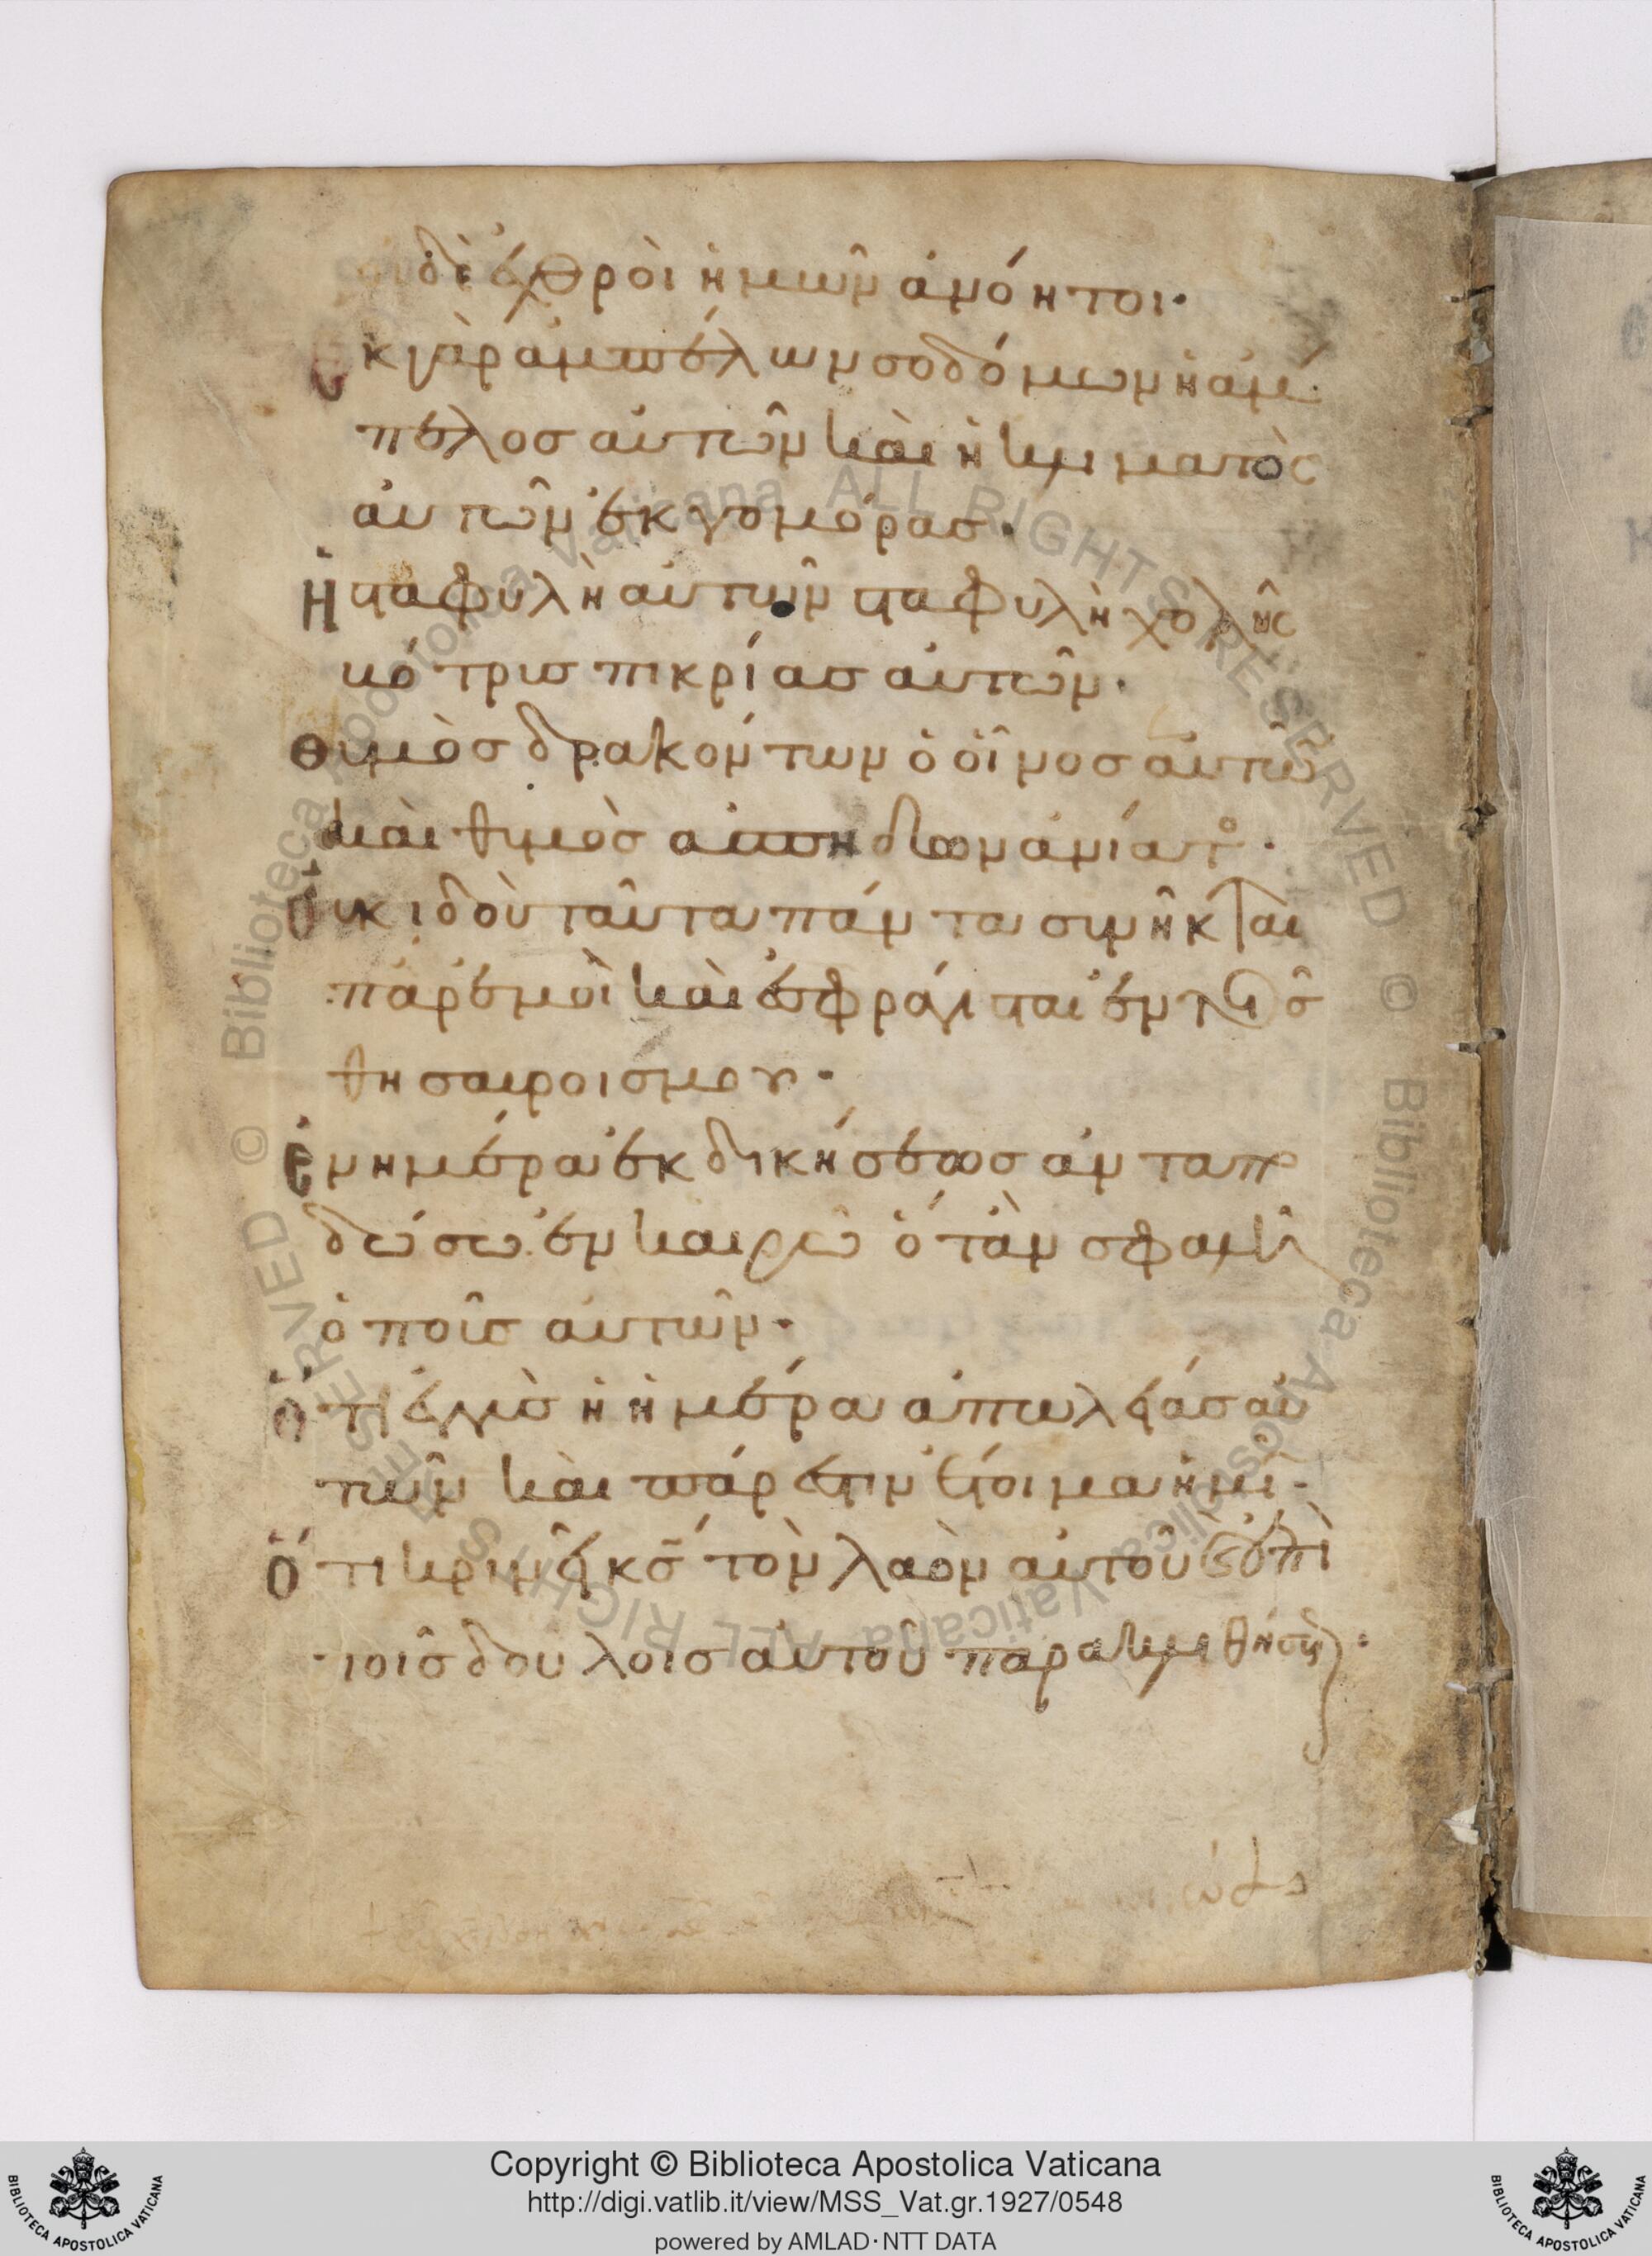 οὐδὲ ἐχθροὶ ἡμῶν ἀνόητοι·
Ἐκ γὰρ ἀμπέλων σοδόμων ἡ ἄμ
πελος αὐτῶν καὶ ἡ κλιματὸς
αὐτῶν ἐκ γομόρας·
Ἡ σταφυλὴ αὐτῶν σταφυλὴ χολῆς
βότρισ πικρίας αὐτῶν·
θυμὸς δρακόντων ὁ οἶνος αὐτῶ
καὶ θυμὸς ἀσπήδων ἀνίατο·
Οὐκ ιδοὺ ταῦτα πάντα συνῆκται
παρ ἐμοὶ καὶ ἐσφράγισται ἐν τοῖσ
θησαυροισ μου·
Ἐν ημέρα ἐκδικήσεωσ ἀνταπο
δώσω ἐν καιρῶ ὅταν σφαλῆ
ὁ ποῦσ αὐτῶν·
Ὅτι ἐγγὺσ ἡ ἡμέρα ἀπωλείασ αὐ
τῶν καὶ πάρεστιν ἕτοιμα ἡμῖ·
Ὅτι κρινεῖ κσ τὸν λαὸν αὐτοῦ καὶ ἐπὶ
τοῖσ δούλοισ αὐτοῦ παρακληθήσεται·
Copyright © Biblioteca Apostolica Vaticana
http://digi.vatlib.it/view/MSS_Vat.gr.1927/0548
powered by AMLAD·NTT DATA
BIBLIOTECA APOSTOLICA VATICANA
BIBLIOTECA APOSTOLICA VATICANA
© Biblioteca Apostolica Vaticana ALL RIGHTS RESERVED
© Biblioteca Apostolica Vaticana ALL RIGHTS RESERVED